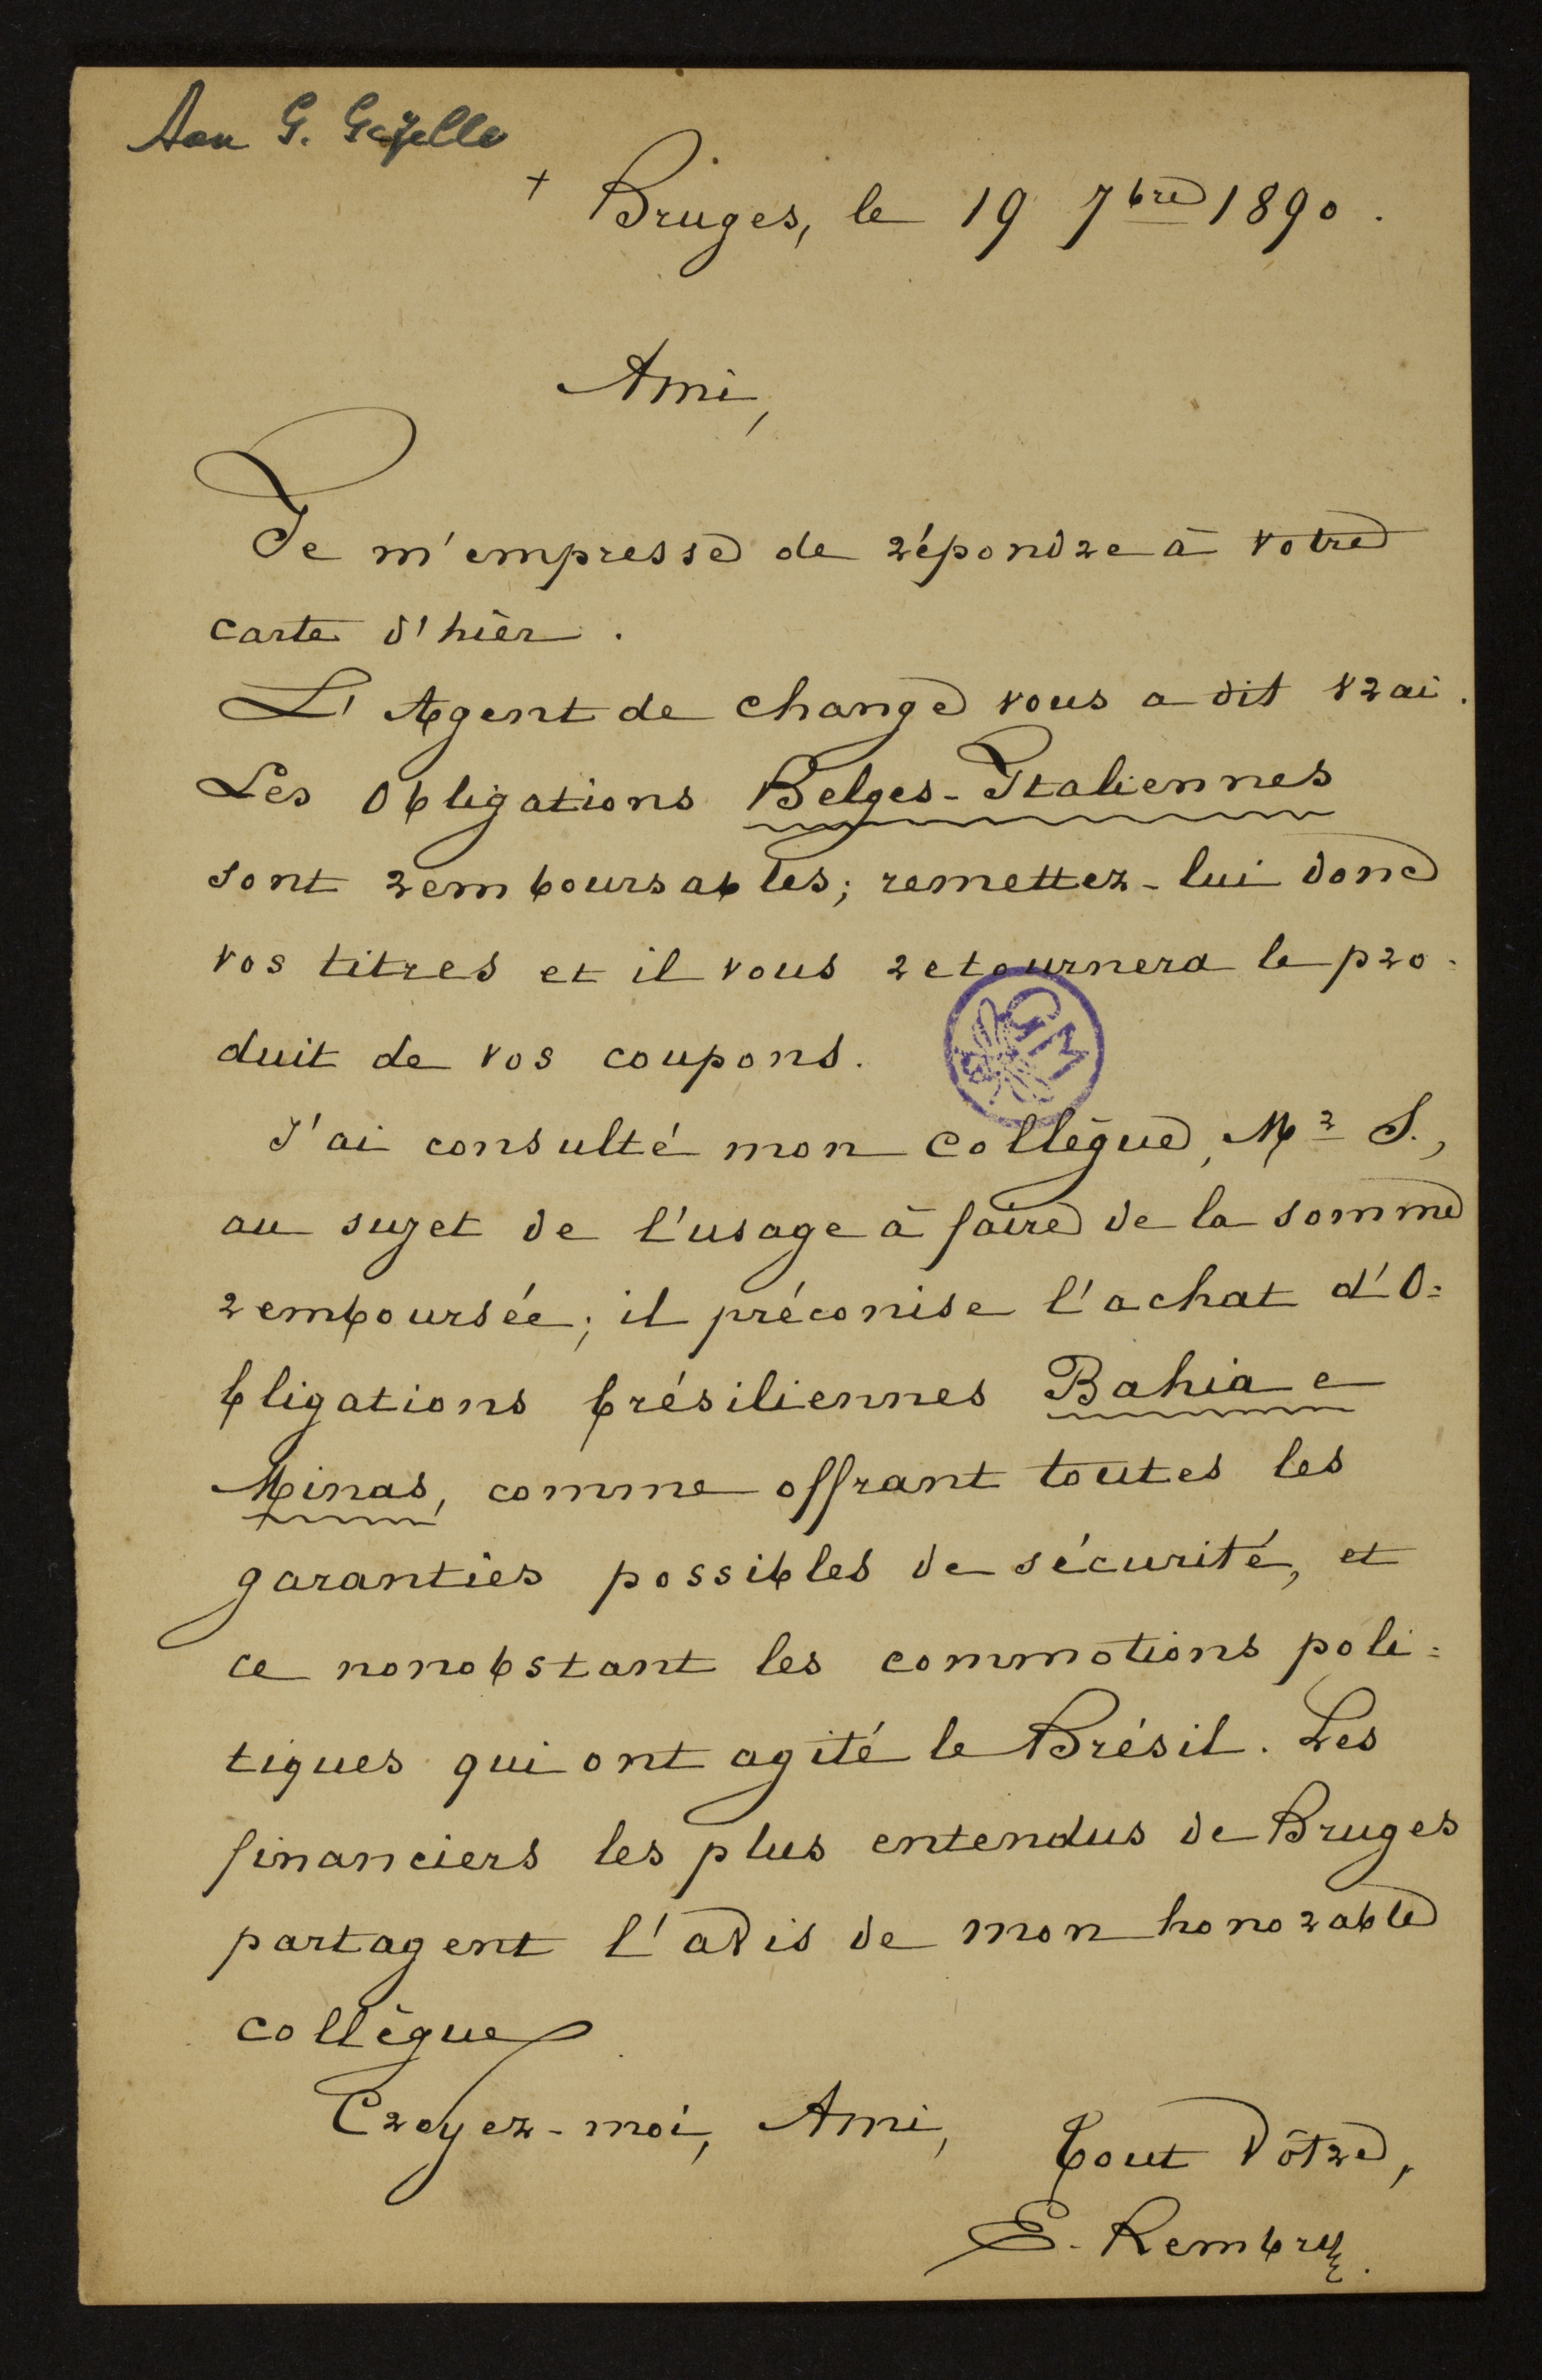 Aan G. Gezelle
+ Bruges, le 19 7bre 1890.
Ami,
Je m'empresse de répondre à votre
carte d'hièr.
L'Agent de change vous a dit vrai.
Les Obligations Belges-Italiennes
sont remboursables; remettez-lui donc
vos titres et il vous retournera le pro-
duit de vos coupons.
GM
J'ai consulté mon collègue, Mr S.,
au sujet de l'usage à faire de la somme
remboursée; il préconise l'achat d'O=
bligations brésiliennes Bahia e
Minas, comme offrant toutes les
garanties possibles de sécurité, et
ce nonobstant les commotions poli=
tiques qui ont agité le Brésil. Les
financiers les plus entendus de Bruges
partagent l'avis de mon honorable
collègue.
Croyez-moi, Ami,
Tout vôtre,
E. Rembry.